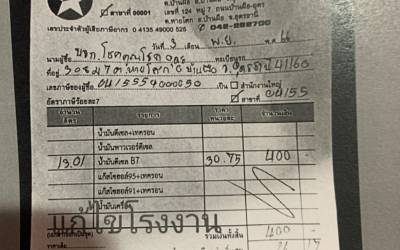 ☑ สาขาที่ 00001
เลขที่ 124 หมู่ 7 ถนนบ้านผือ-อุดร
ต.หายโศก อ.บ้านผือ จ.อุดรธานี
เลขประจำตัวผู้เสียภาษีอากร 0 4135 49000 525
วันที่ 3 เดือน พ.ย. 66
นามผู้ซื้อ บจก. โชคคุณโชติ
ที่อยู่ 308 ม.7 ต.หายโศก อ.บ้านผือ จ.อุดรธานี 41160
เลขภาษีของผู้ซื้อ เป็น ☐ สำนักงานใหญ่
☑ สาขาที่
อัตราภาษีร้อยละ7
จำนวน ลิตร รายการ ราคา หน่วยละ จำนวนเงิน
น้ำมันดีเซล+เทครอน
น้ำมันพาวเวอร์ดีเซล
13.01 น้ำมันดีเซล B7 30.75 400 -
แก๊สโซฮอล์95+เทครอน
แก๊สโซฮอล์91+เทครอน
น้ำมันเครื่อง
แก้ไขโรงงาน
รวมเงินทั้งสิ้น 400 -